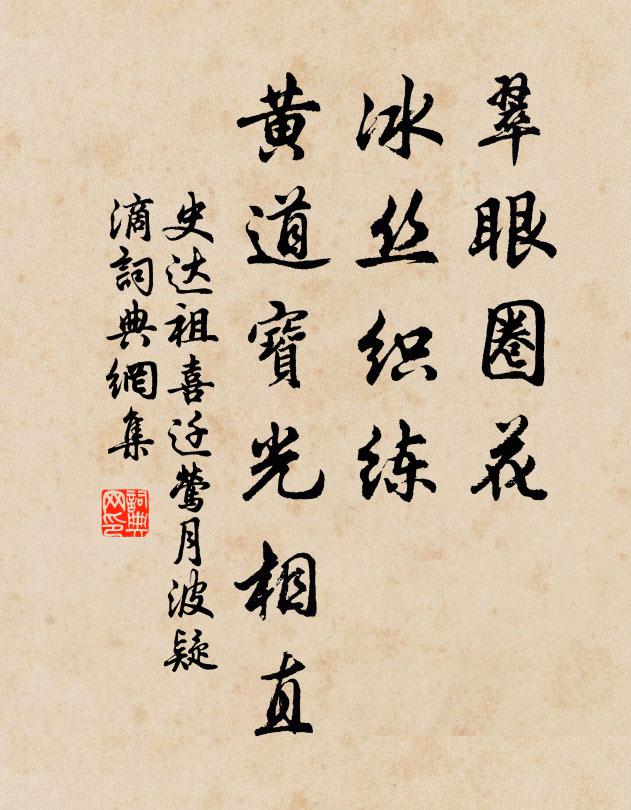 翠眼圈花
冰丝织练
黄道寶光相直
史达祖喜迁莺月波疑
滴詞典網集
詞典网印